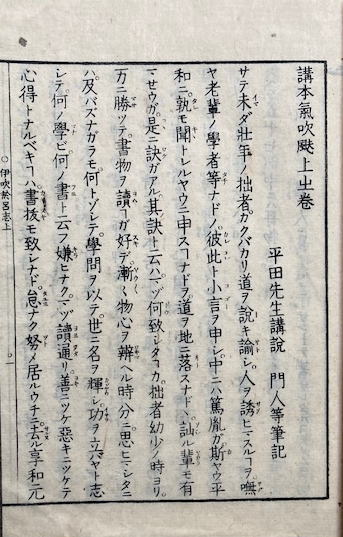 講本氣吹颫上出卷
平田先生講說 門人等筆記
サテ未ダ壯年ノ拙者ガクバカリ道ヲ說キ諭シ人ヲ誘ヒマスルヿヲ嘸
ヤ老輩ノ學者等ナドノ彼此ト小言ヲ申シ中ニハ篤胤ガ斯ヤウ平
和ニ孰モ聞トレルヤウニ申スヿナドヲ道ヲ地ニ落スナドヽ訕ル輩モ有
マセウガ是ニ訣ガアル其訣ト云ハマヅ何致シタヿカ拙者幼少ノ時ヨリ
万ニ勝ツテ書物ヲ讀ヿガ好デ漸々物心ヲ辨ヘル時分ニ思ヒマシタニ
ハ及バズナガラモ何トゾシテ學問ヲ以テ世ニ名ヲ輝シ功ヲ立バヤト志
シテ何ノ學ビ何ノ書ト云フ嫌ヒナクマヅ讀通リ善ニツケ惡キニツケテ
心得トナルベキヿハ書拔モ致シナドシ怠ナク努メ居ルウチニ去ル享和元
○伊吹於呂志上
○一